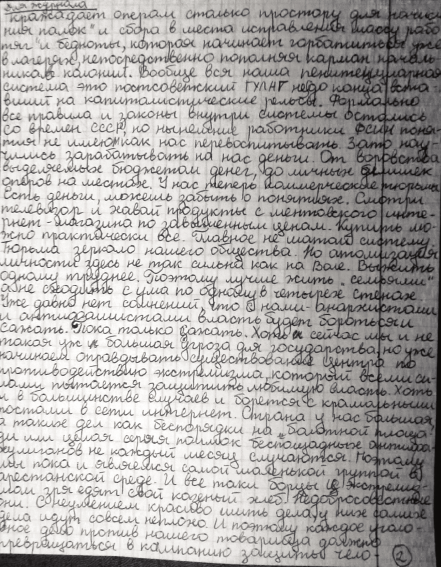 для журнала
кражадает операм столько простору для
ния палок" и сбора в места исправления массу рабо
тяг" и бедноты, которая начинает горбатиться уже
в лагерях, непосредственно пополняя карман началь
ников колоний. Вообще вся наша пенитенциарная
система это постсоветский ГУЛАГ
на капиталистические рельсы. Формально
все правила и законы внутри системы остались
со времен СССР, но нынешние работники ФСИН поня
тия не имеют как нас перевоспитывать. Зато нау
чились зарабатывать на нас деньги. От воровства
выделяемых бюджетом денег, до личных фишек
оперов на местах. У нас теперь коммерческие тюрьмы
Есть деньги, можешь забыть о понятиях. Смотри
телевизор и хавай продукты с ментовского инте-
рнет-магазина по завышенным ценам. Купить мо-
жно практически все. Главное не шатай систему.
Тюрьма зеркало нашего общества. Но атомизация
личности здесь не так сильна как на Воле. Выжить
одному труднее. Поэтому лучше жить „семьями"
а не сходить с ума по одному в четырех стенах
Уже давно нет сомнений, что с нами-анархистами
и антифашистами власть будет бороться и
сажать. Пока только сажать. Хоть сейчас мы и не
такая уж и большая угроза для государства, но уже
начинаем оправдывать существование Центра по
противодействию экстремизма, который всеми си-
лами пытается защитить любимую власть. Хоть
и в большинстве случаев и борется с крамольными
постами в сети интернет. Страна у нас большая
а таких дел как беспорядки на „Болотной площа
ди" или целая серия поимок беспощадных антифа-
хулиганов не каждый месяц случаются. Поэтому
мы пока и являемся самой маленькой группой в
арестанской среде. И все таки борцы с экстремиз-
мом зря едят свой казеный хлеб. Недобросовестные
они. С неумением красиво шить дела у них самих
дела идут совсем неплохо. И поэтому каждое уголо-
вное дело против нашего товарища должно
превращаться в кампанию защиты чело- 2